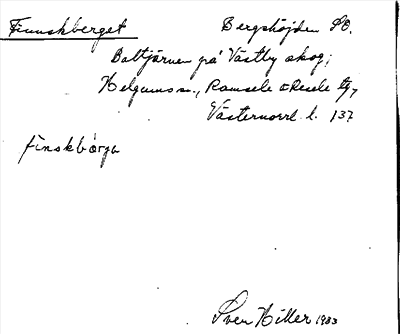 Finnskberget Bergshöjden SO.
Baltjärnen på Västby skog;
Helgums sn., Ramsele o Resele tg,
Västernorrl. l. 137
finskbærja
Sven Hiller 1983